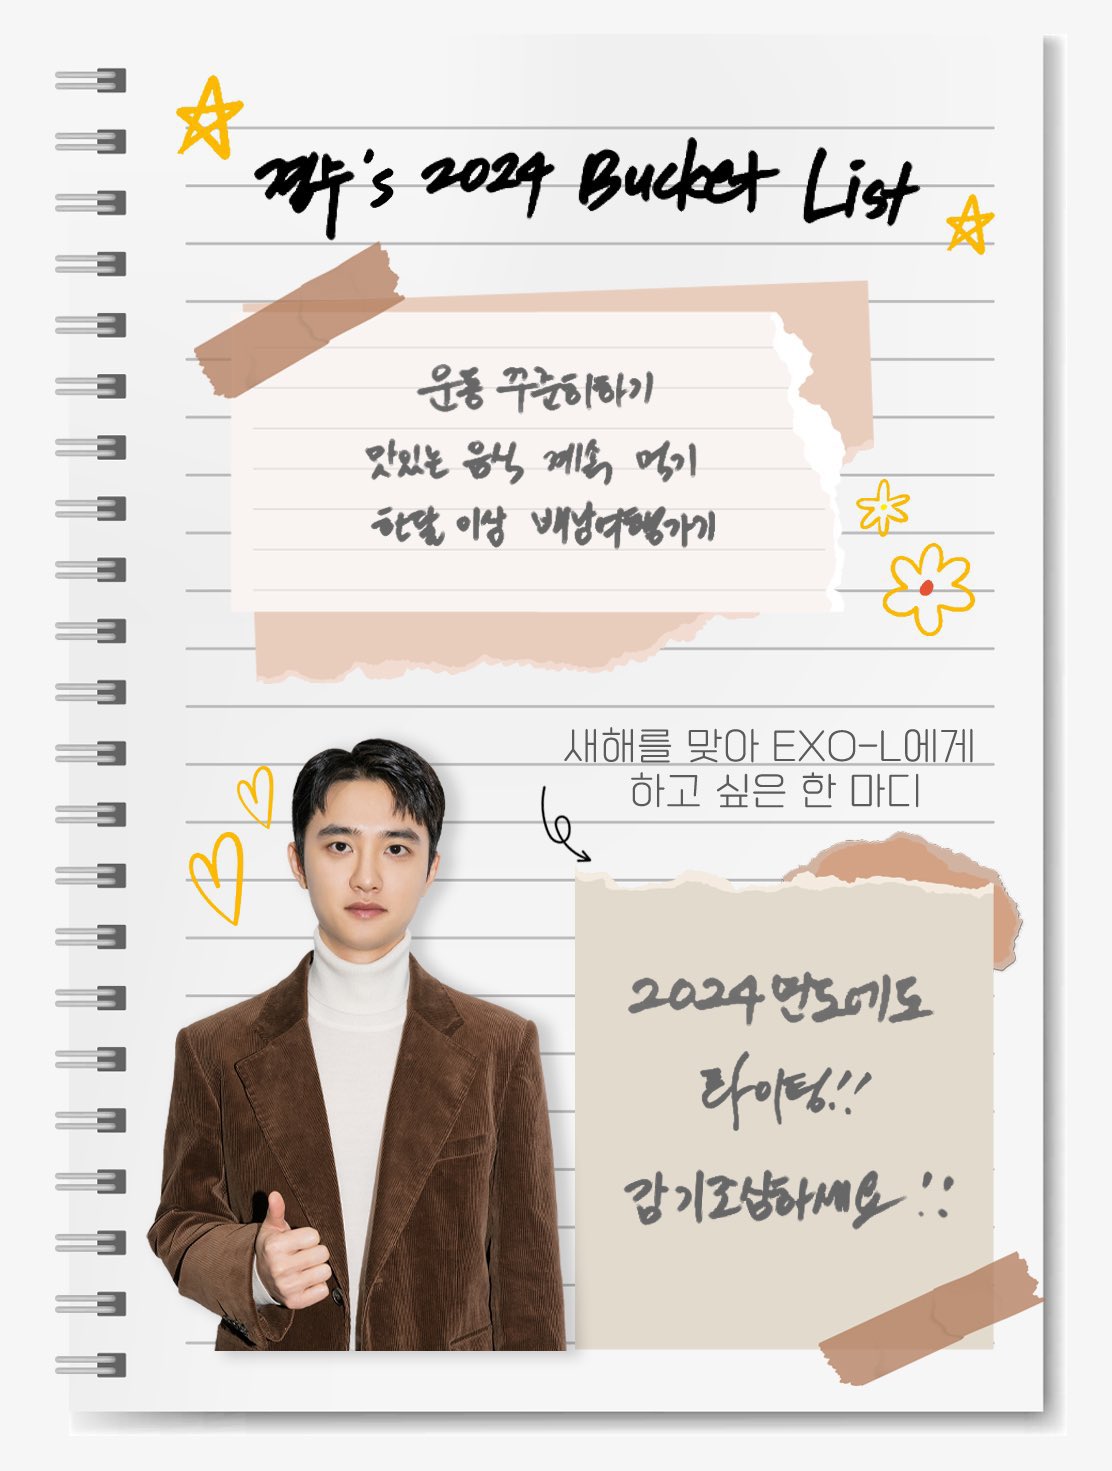 경수's 2024 Bucket List
운동 꾸준히하기
맛있는 음식 계속 먹기
한달 이상 배낭여행가기
새해를 맞아 EXO-L에게
하고 싶은 한 마디
2024년도에도
화이팅!!
감기조심하세요!!